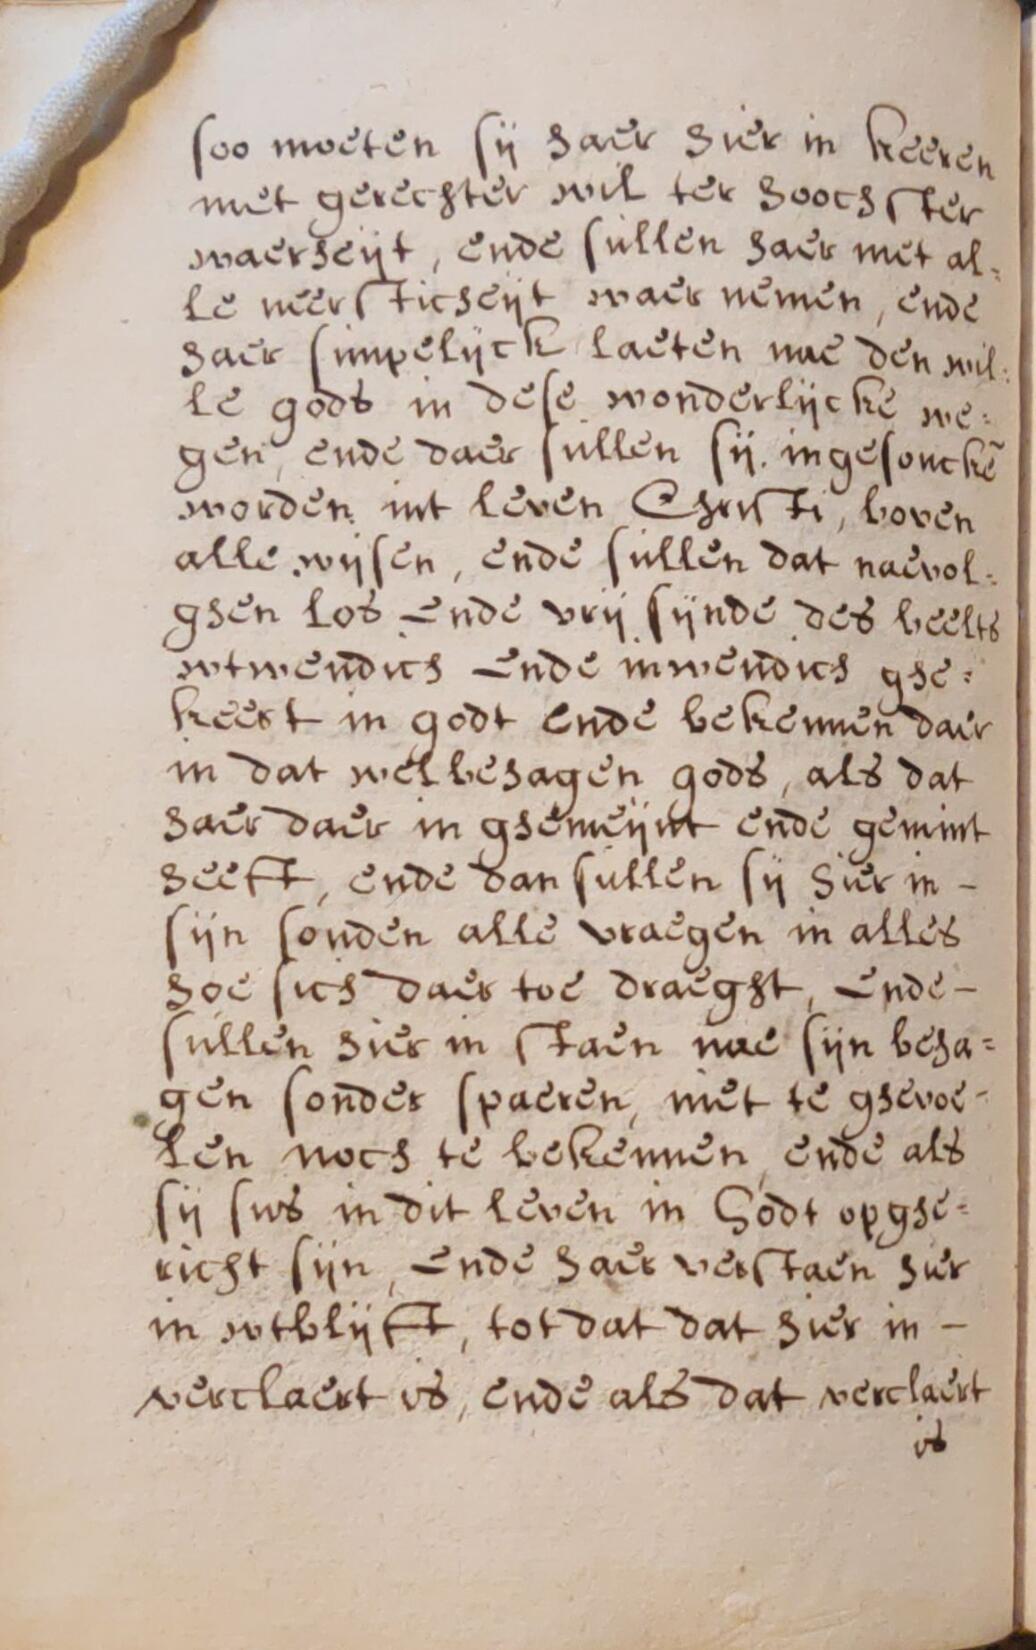 soo moeten sij haer hier in keeren
met gerechter wil ter hoochster
waerheijt, ende sullen haer met al=
le neersticheijt waer nemen, ende
haer simpelijck laeten nae den wil=
le gods in dese wonderlijcke we=
gen, ende daer sullen sij ingesonckē
worden int leven Christi, boven
alle wijsen, ende sullen dat naevol=
ghen los ende vrij sijnde des beelts
wtwendich ende inwendich ghe=
keert in godt ende bekennen daer
in dat welbehagen gods, als dat
haer daer in ghemeijnt ende gemint
heeft, ende dan sullen sij hier in -
sijn sonden alle vraegen in alles
hoe sich daer toe draeght, ende -
sullen hier in staen nae sijn beha=
gen sonder spaeren, niet te ghevoe=
len noch te bekennen, ende als
sij sus in dit leven in Godt opghe=
richt sijn, ende haer verstaen hier
in wtblijft, tot dat dat hier in -
verclaert is, ende als dat verclaert
is